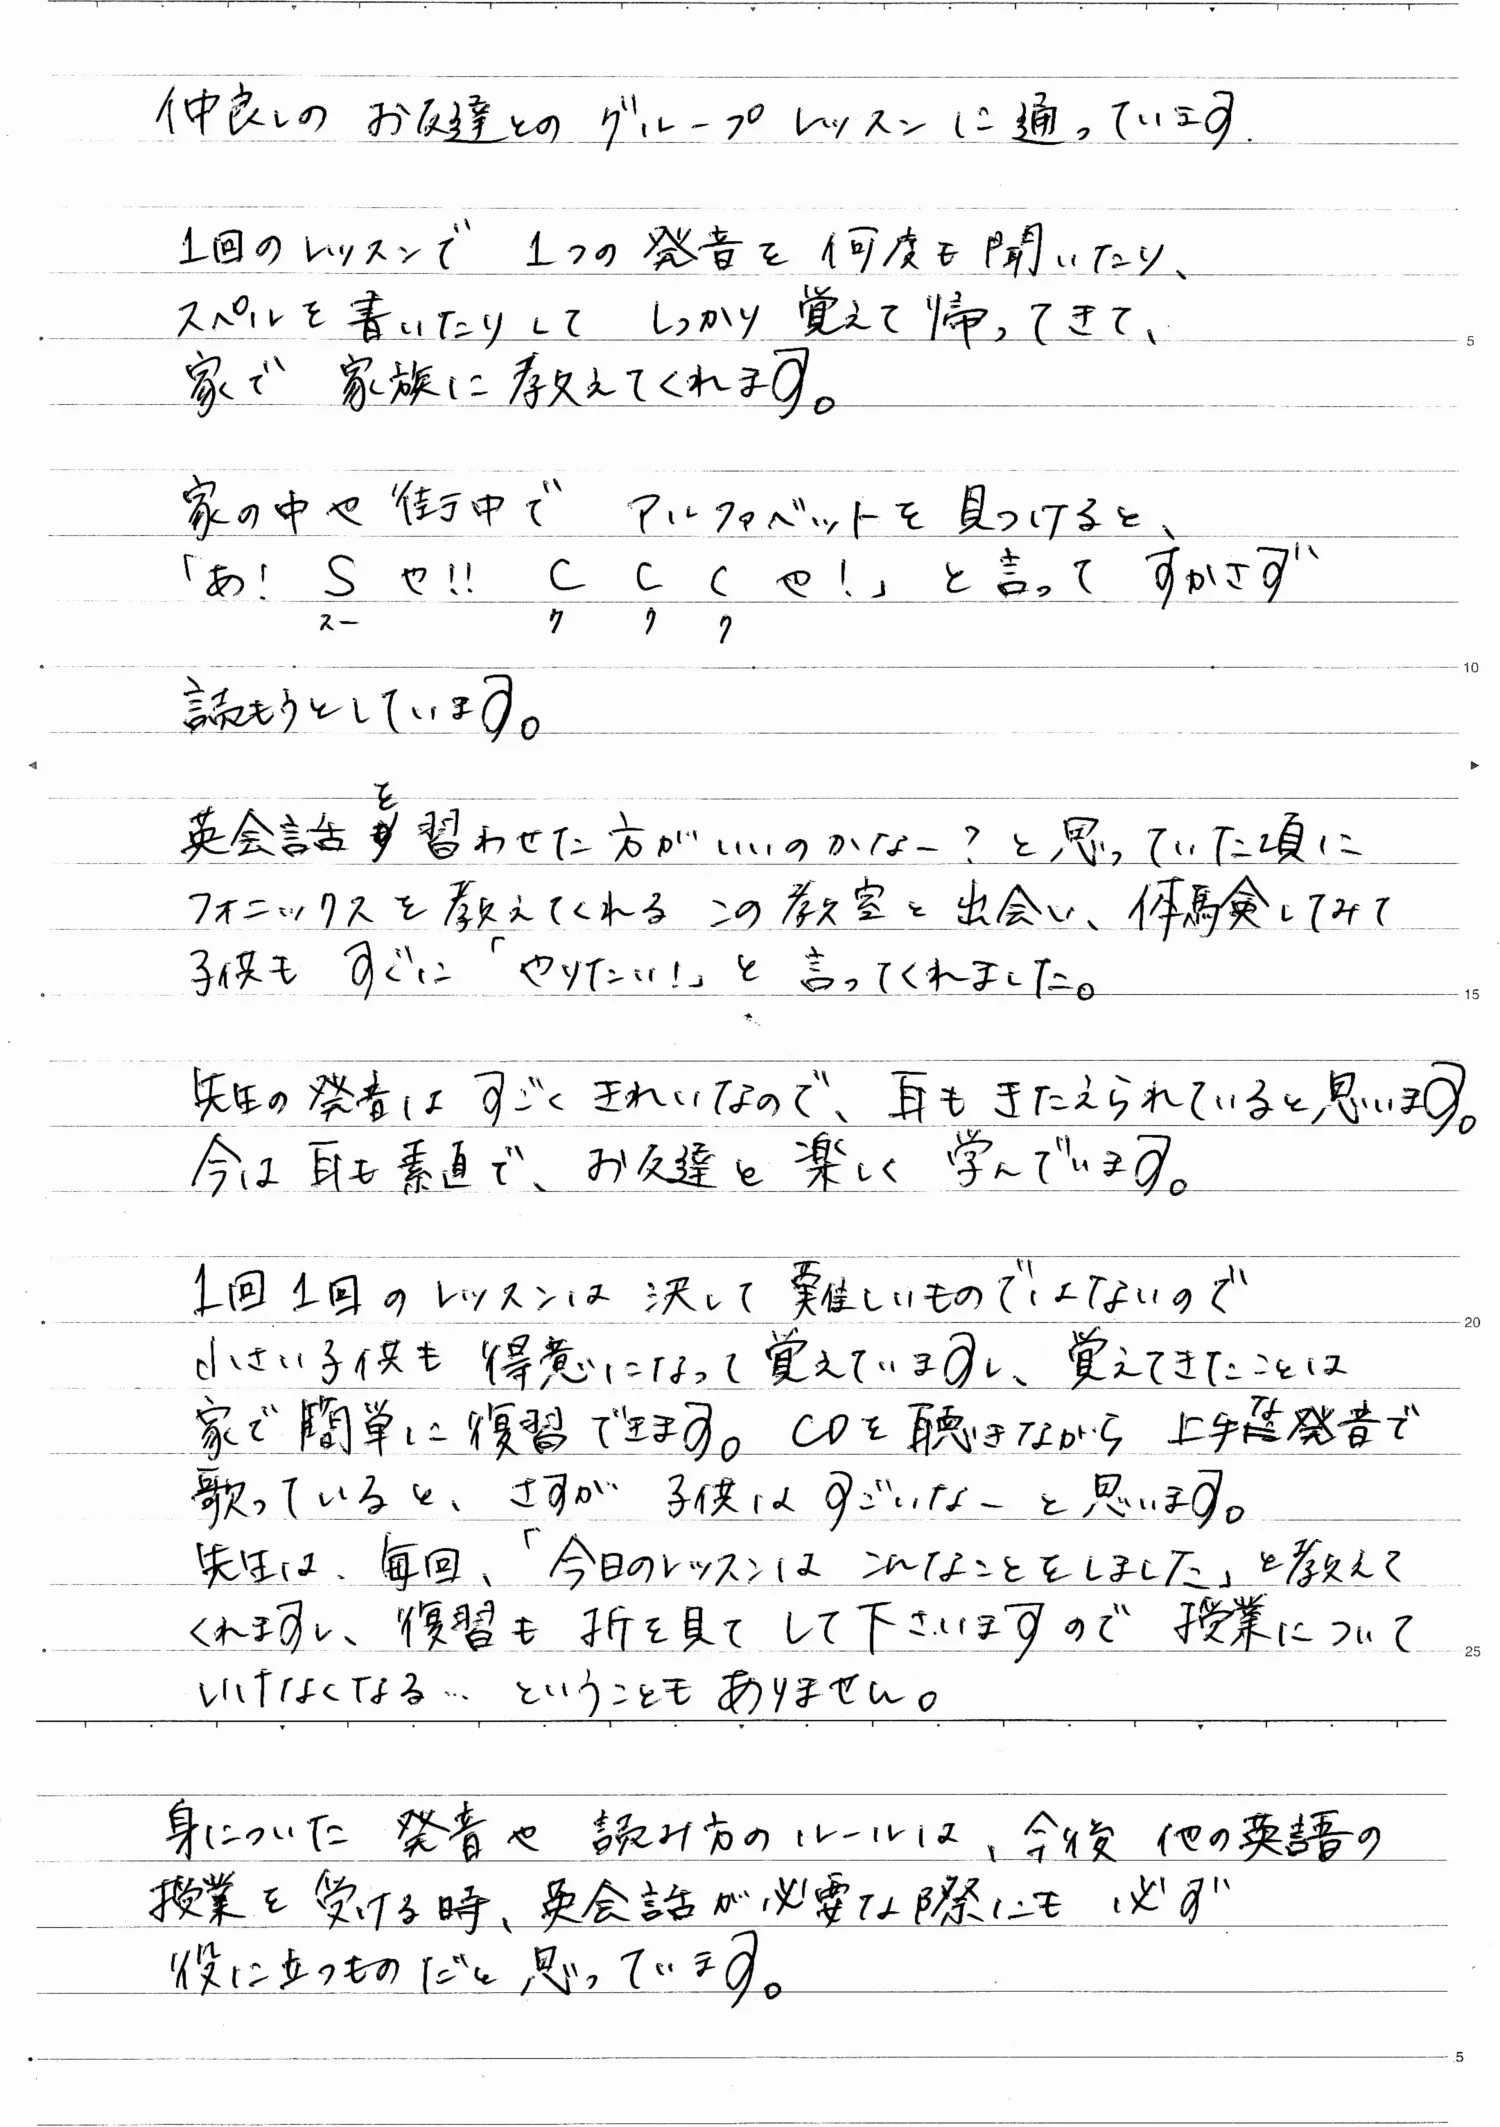 仲良しの お友達との グループ レッスンに通っています.
1回のレッスンで 1つの発音を何度も聞いたり、
スペルを書いたりして しっかり覚えて帰ってきて、
家で 家族に教えてくれます。
家の中や街中で アルファベットを見つけると、
「あ! S や!! C C C や!」と言って すかさず
スー ク ク ク
読もうとしています。
英会話を習わせた方がいいのかなー?と思っていた頃に
フォニックスを教えてくれる この教室と出会い、体験してみて
子供も すぐに「やりたい!」と 言ってくれました。
先生の発音は すごくきれいなので、耳もきたえられていると思います。
今は耳も素直で、お友達と楽しく 学んでいます。
1回1回のレッスンは 決して難しいものではないので
小さい子供も 得意になって覚えていますし、覚えてきたことは
家で簡単に復習できます。CDを聴きながら 上手な発音で
歌っていると、さすが 子供は すごいなーと思います。
先生は、毎回、「今日のレッスンは こんなことをしました」と教えて
くれますし、復習も 折を見て して下さいますので 授業について
いけなくなる… ということもありません。
身についた 発音や 読み方のルールは、今後 他の英語の
授業を受ける時、英会話が必要な際にも 必ず
役に立つものだと思っています。
5
10
15
20
25
5